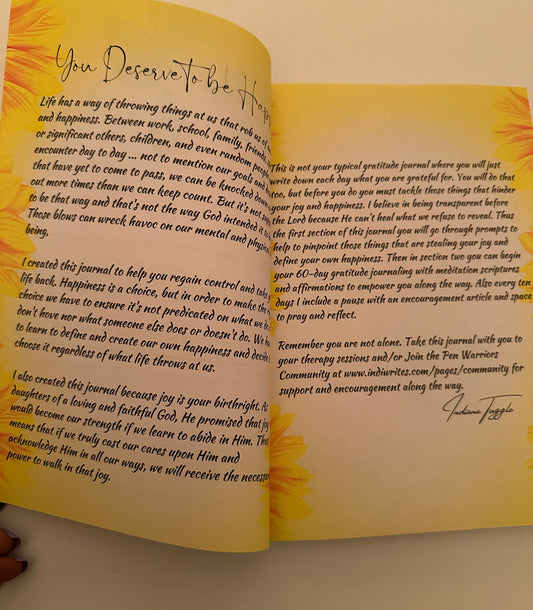 You Deserve To be
Life has a way of throwing things at us that rob us of
and happiness. Between work, school, family, friends,
or significant others, children, and even random people
encounter day to day ... not to mention our goals and
that have yet to come to pass, we can be knocked down
out more times than we can keep count. But it's not
to be that way and that's not the way God intended it to
Those blows can wreck havoc on our mental and physical
being,
I created this journal to help you regain control and take
life back. Happiness is a choice, but in order to make the
choice we have to ensure it's not predicated on what we
don't have nor what someone else does or doesn't do. We
to learn to define and create our own happiness and decide
choose it regardless of what life throws at us.
I also created this journal because joy is your birthright. As
daughters of a loving and faithful God, He promised that joy
would become our strength if we learn to abide in Him. That
means that if we truly cast our cares upon Him and
acknowledge Him in all our ways, we will receive the necessary
power to walk in that joy.
This is not your typical gratitude journal where you will just
write down each day what you are grateful for. You will do that
too, but before you do you must tackle those things that hinder
your joy and happiness. I believe in being transparent before
the Lord because He can't heal what we refuse to reveal. Thus
the first section of this journal you will go through prompts to
help to pinpoint those things that are stealing your joy and
define your own happiness. Then in section two you can begin
your 60-day gratitude journaling with meditation scriptures
and affirmations to empower you along the way. Also every ten
days I include a pause with an encouragement article and space
to pray and reflect.
Remember you are not alone. Take this journal with you to
your therapy sessions and/or Join the Pen Warriors
Community at www.indiwrites.com/pages/community for
support and encouragement along the way.
Indiana Tuggle